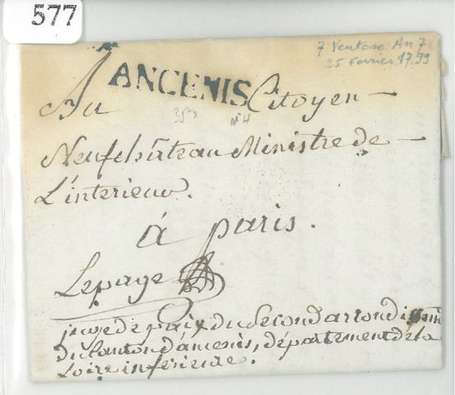 577
7 Ventose An 7
25 Fevrier 1799
ANCENIS
Au Citoyen
Neufchâteau Ministre de
L'interieur.
à paris.
Lepage
juge de paix du Second arrondissem
du Canton d'ancenis, département de la
Loire inférieure.